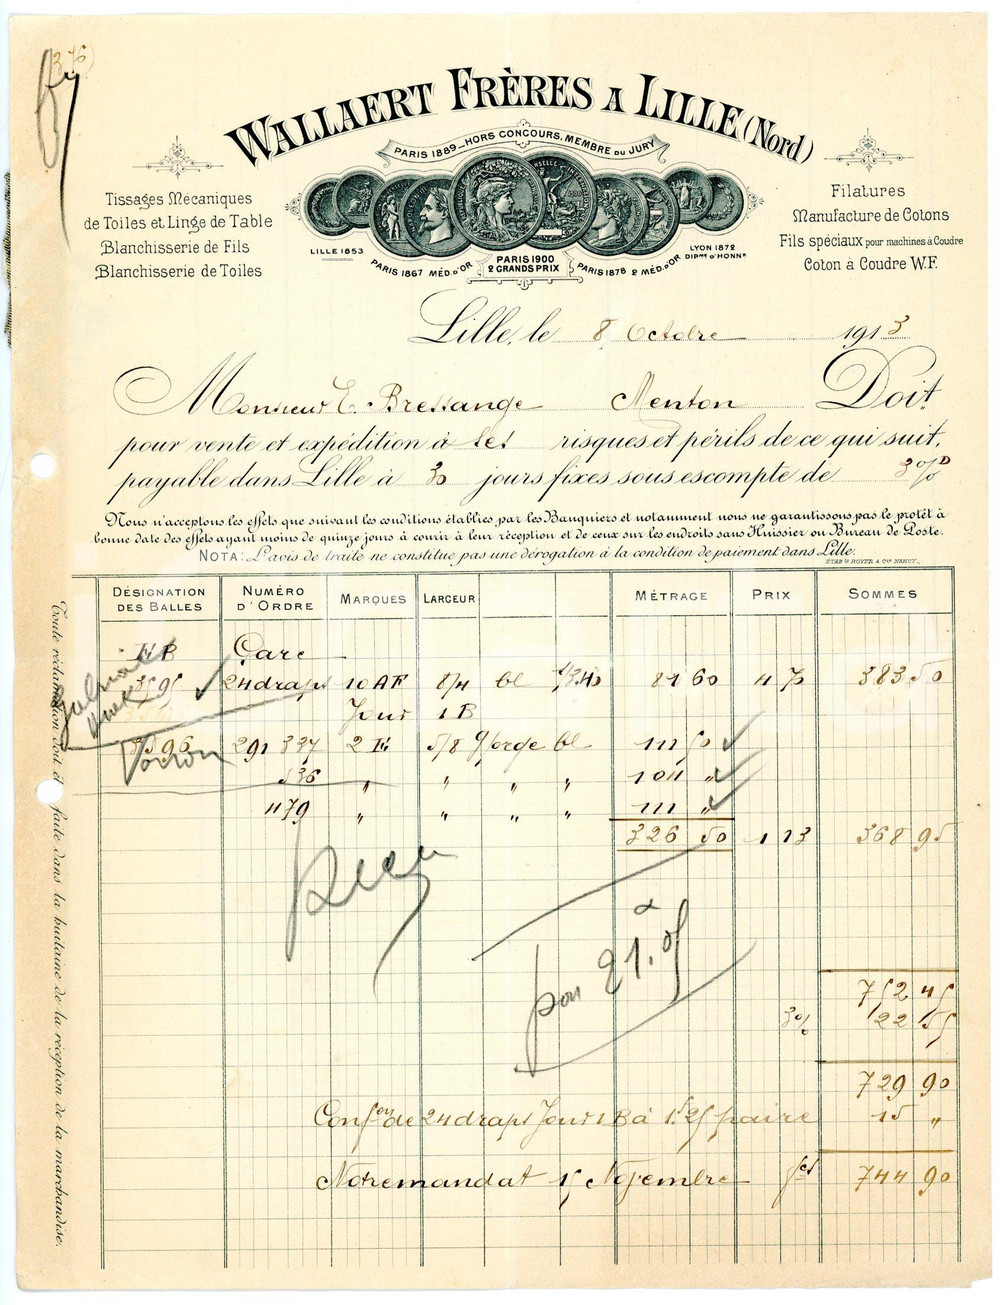 376
WALLAERT FRÈRES A LILLE (Nord)
PARIS 1889_HORS CONCOURS, MEMBRE DU JURY
Tissages Mécaniques
de Toiles et Linge de Table
Blanchisserie de Fils
Blanchisserie de Toiles
Filatures
Manufacture de Cotons
Fils spéciaux pour machines à Coudre
Coton à Coudre W.F.
LILLE 1853
PARIS 1867 MÉD. D'OR
PARIS 1900
2 GRANDS PRIX
PARIS 1878 2 MÉD. D'OR
LYON 1872
DIPmes D'HONNr
Lille, le 8 Octobre 1913
Monsieur E. Bressange Menton Doit
pour vente et expédition à ses risques et périls de ce qui suit,
payable dans Lille à 30 jours fixes sous escompte de 3%
Nous n'acceptons les effets que suivant les conditions établies par les Banquiers et notamment nous ne garantissons pas le protêt à
bonne date des effets ayant moins de quinze jours à courir à leur réception et de ceux sur les endroits sans Huissier ou Bureau de Poste.
NOTA: L'avis de traite ne constitue pas une dérogation à la condition de paiement dans Lille.
ETABts ROYER & Cie NANCY.
DÉSIGNATION DES BALLES NUMÉRO D'ORDRE MARQUES LARGEUR MÉTRAGE PRIX SOMMES
EB Gare
3595 24 draps 10 AF 8/4 bl 1/3.40 81 60 4 70 383 50
Jour 1 B
3596 291 337 2 E 5/8 G/orge bl 111 50
Voiron
536 " " " " 104 "
479 " " " " 111 "
326 50 1 13 368 95
pon 21.05
752 45
3% 22 55
729 90
Confon de 24 draps Jour 1 B à 1f25 paire 15 "
Notre mandat 15 Novembre fcs 744 90
Toute réclamation doit être faite dans la huitaine de la réception de la marchandise.